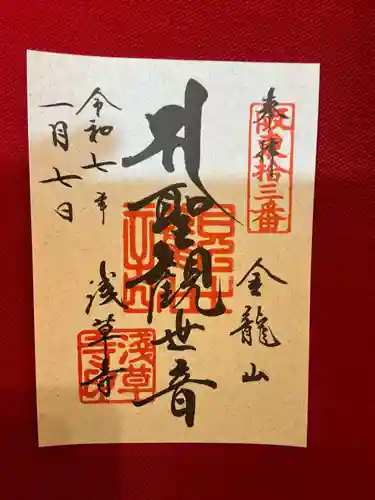 奉拝
坂東拾三番
聖観世音
金龍山
浅草寺
浅草寺印
令和七年
一月七日